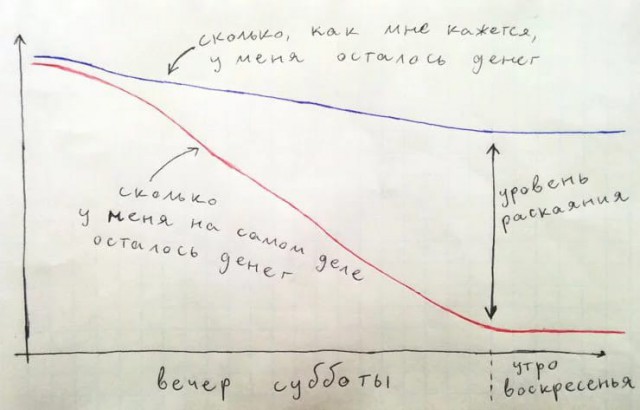 сколько, как мне кажется,
у меня осталось денег
сколько
у меня на самом деле
осталось денег
уровень
раскаяния
вечер субботы
утро
воскресенья